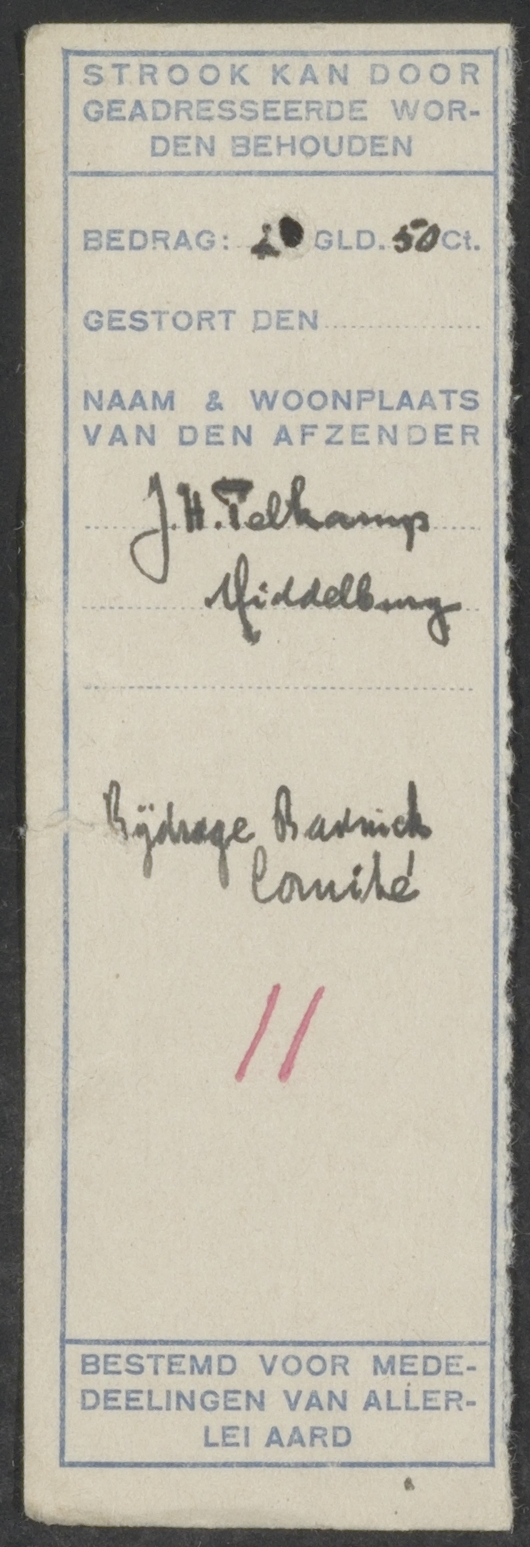 STROOK KAN DOOR
GEADRESSEERDE WOR-
DEN BEHOUDEN
BEDRAG: GLD. 50 Ct.
GESTORT DEN
NAAM & WOONPLAATS
VAN DEN AFZENDER
J.H. Telkamp
Middelburg
Bijdrage
Comité
11
BESTEMD VOOR MEDE-
DEELINGEN VAN ALLER-
LEI AARD